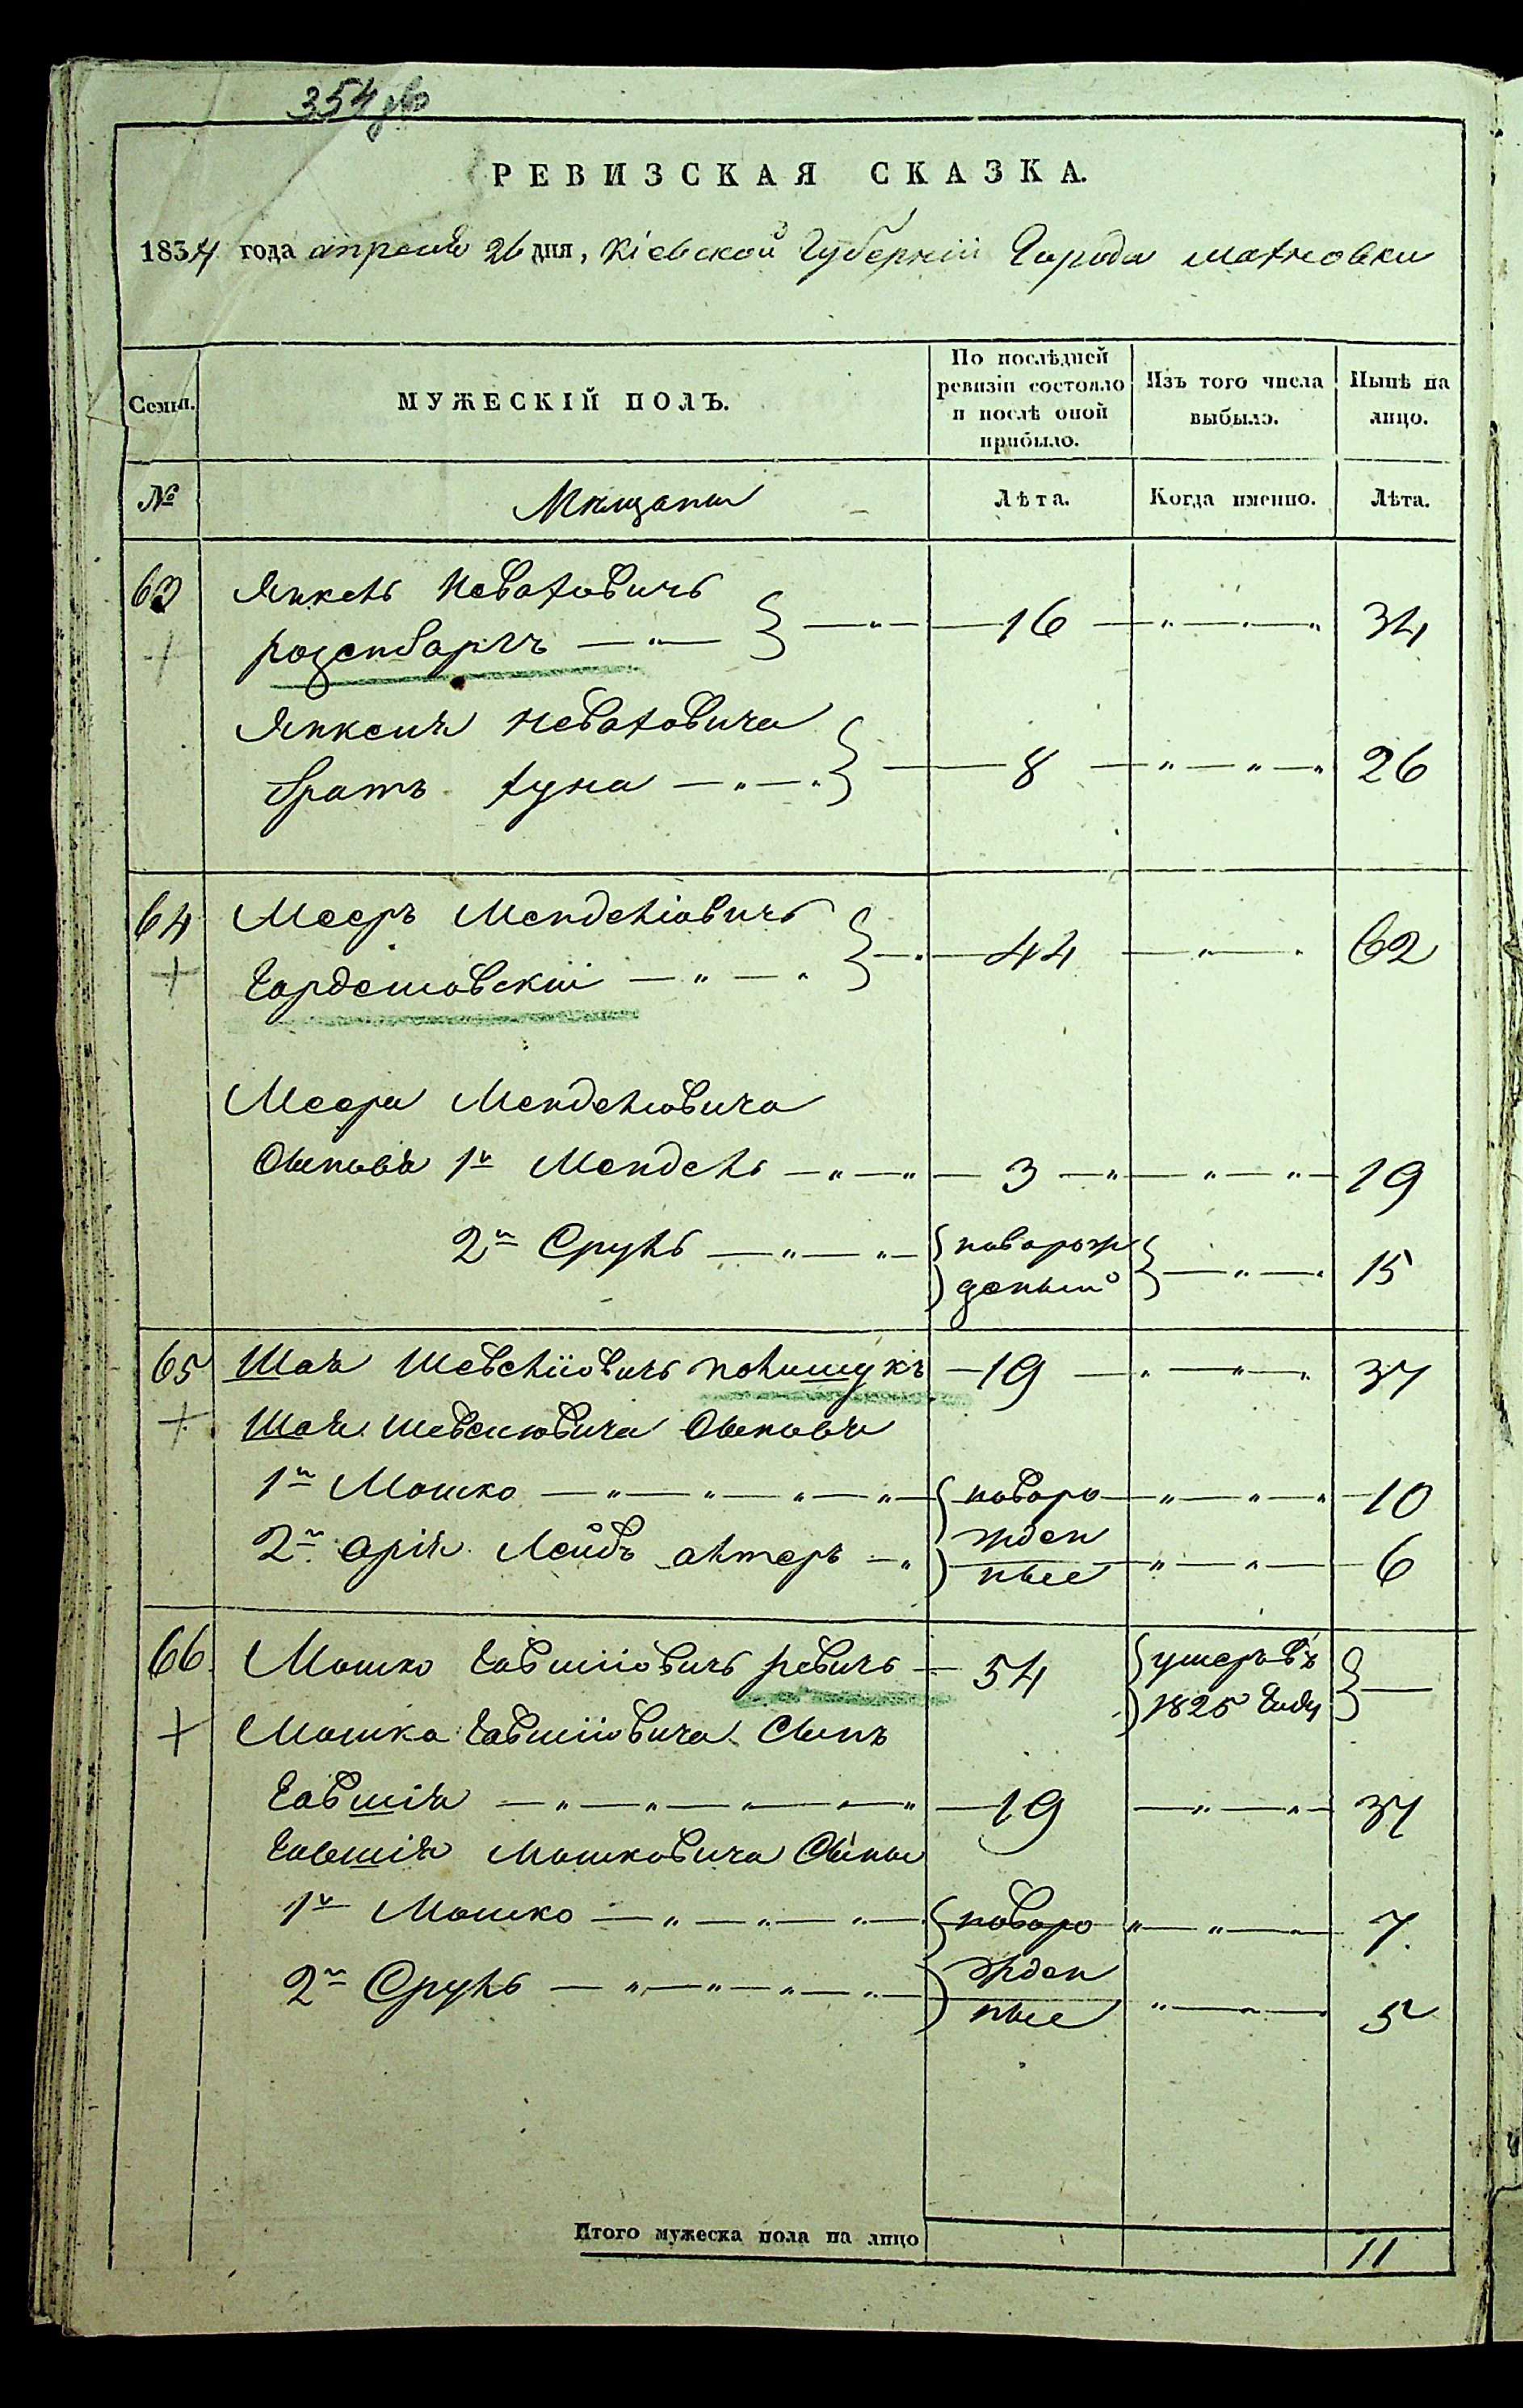 354 об
РЕВИЗСКАЯ СКАЗКА.
1834 года апреля 26 дня, Кіевской Губерніи Города махновки
Семьи.
МУЖЕСКІЙ ПОЛЪ.
По послѣдней ревизіи состояло и послѣ оной прибыло.
Изъ того числа выбыло.
Нынѣ на лицо.
№
Мещаны
Лѣта.
Когда именно.
Лѣта.
63 Янкель Неваховичь
розенбаргъ 16 34
Янкеля Неваховича
братъ хуна 8 26
64 Мееръ Менделіовичь
44 62
Меера Менделіовича
Сыновя 1й Мендель 3 19
2й Сруль новорож
деный 15
65 Шая Шевеліювичь полищукъ 19 37
Шая Шевелювича Сыновя
1й Мошко новоро 10
2й арія Лейбъ алтеръ жден 6
ные
66 Мошко Говшіювичь ревичь 54 умеръ въ
1825 Году
Мошка Говшіювича Сынъ
Говшія 19 37
Говшія Мошковича Сыны
1й Мошко новоро 7
2й Сруль жден
ные 5
Итого мужеска пола на лицо 11